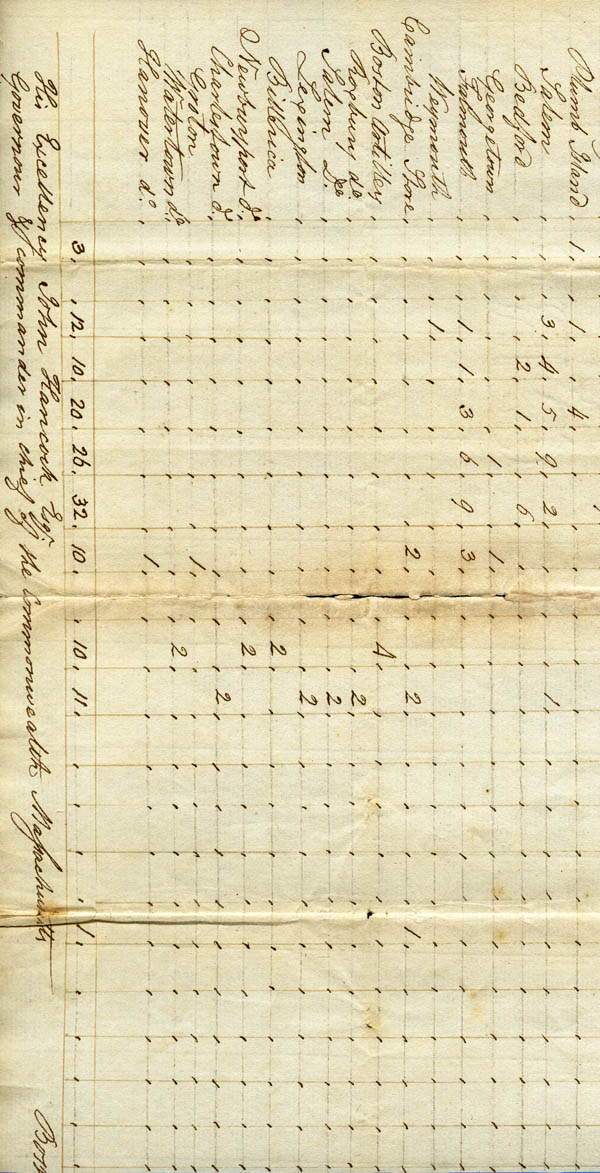 Plumb Island 1 1 4
Salem 3 4 5 9 2 1
Bedford 2 1 6
Georgetown 1 1
Falmouth 1 1 3 6 9 3
Weymouth 1
Cambridge Store 2 2 1
Boston Artillery 4
Roxbury do. 2
Salem Do 2
Lexington 2
Billerica 2
Newburyport do. 2
Charlestown do. 2
Groton 1
Watertown do. 2
Hanover do. 1
3 12 10 20 26 32 10 10 11 1
His Excellency John Hancock Esqr.
Governour & commander in chief of the Commonwealth Massachusetts